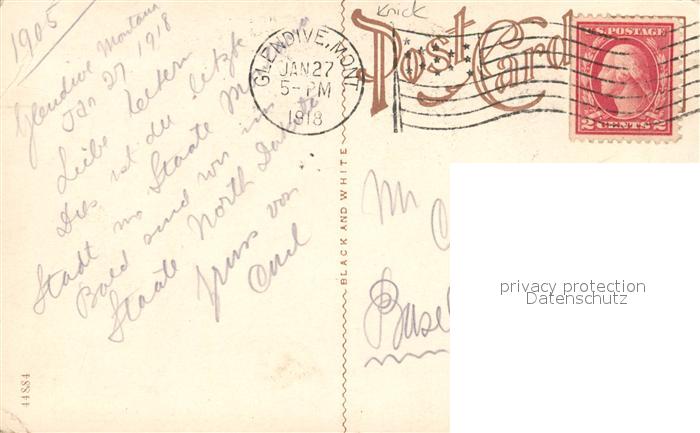 1905
Glendive Montana
Jan 27 1918
Liebe Eltern
Dies ist die letzte
Stadt im Staate M
Bald sind wir im
Staate North Dakota
Gruss von
Emil
44884
BLACK AND WHITE
Knick
Post Card
GLENDIVE, MONT.
JAN 27
5-PM
1918
U.S. POSTAGE
2 CENTS 2
Mr
Basel
privacy protection
Datenschutz